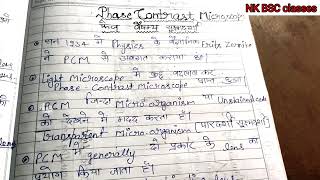 NK BSC classes
Phase Contrast Microscop
कला वैषम्य सूक्ष्मदर्शी
सन 1934 में Physics के वैज्ञानिक Frits Zernike
ने PCM से अवगत कराया है।
Light Microscope में कुछ बदलाव कर
Phase - Contrast Microscope बना हुआ
PCM जिन्दा Micro organism या Unstained cells
को देखने में मदद करता है।
transparent Micro organism [पारदर्शी सूक्ष्मजीव]
PCM में generally दो प्रकार के lens का
प्रयोग किया जाता है।